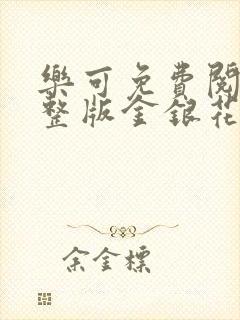 樂可免費閱
整版金銀花
余金標